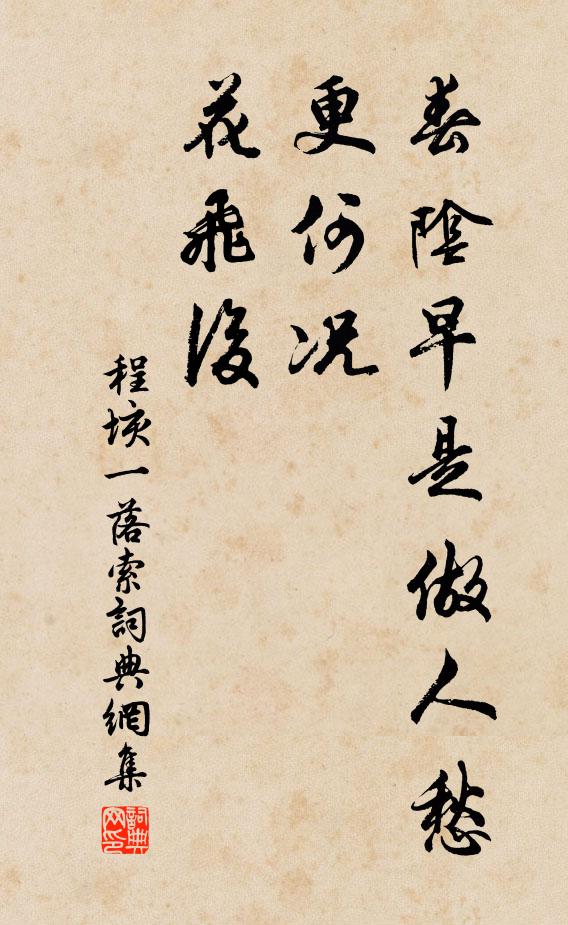 春陰早是做人愁
更何况
花飛後
程垓一落索詞典網集
詞典
网印